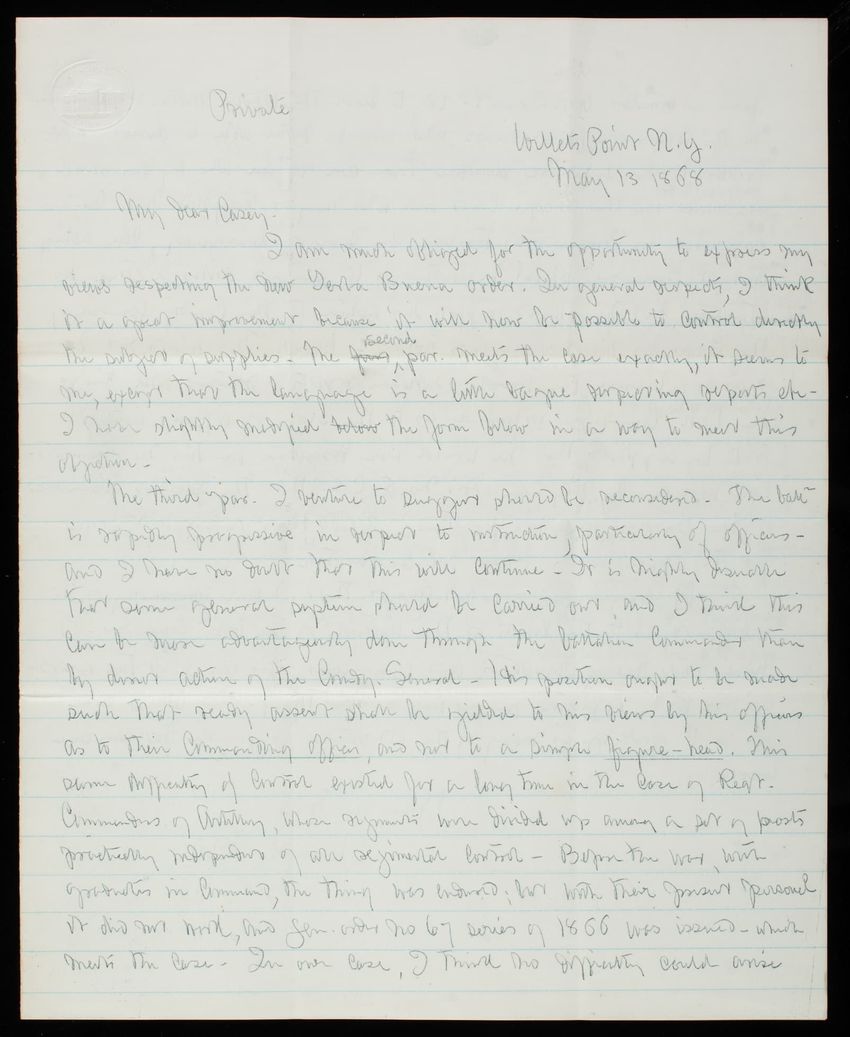 Private
Willets Point N.Y.
May 13 1868
My dear Casey.
I am much obliged for the opportunity to express my
views respecting the new Yerba Buena order. In general respects, I think
it a great improvement because it will now be possible to control directly
the subject of supplies. The first, second par. meets the case exactly, it seems to
me, except that the language is a little vague respecting reports etc-
I have slightly modified below the form below in a way to meet this
objection-
The third par. I venture to suggest should be reconsidered. The batt
is rapidly progressive in respect to instruction, particularly of officers-
and I have no doubt that this will continue- It is highly desirable
that some general system should be carried out and I think this
can be more advantageously done through the battalion Commander than
by direct action of the Comdg. General- His position ought to be made
such that ready assent shall be yielded to his views by his officers
as to their Commanding officer, and not to a simple figure-head. This
same difficulty of control existed for a long time in the case of Regt.
Commanders of Artillery, whose regiments were divided up among a set of posts
practically independent of all regimental control- Before the war, with
graduates in Command, the thing was endured; but with their present personel
it did not work, and Gen. order No 67 series of 1866 was issued- which
meets the case- In our case, I think no difficulty could arise